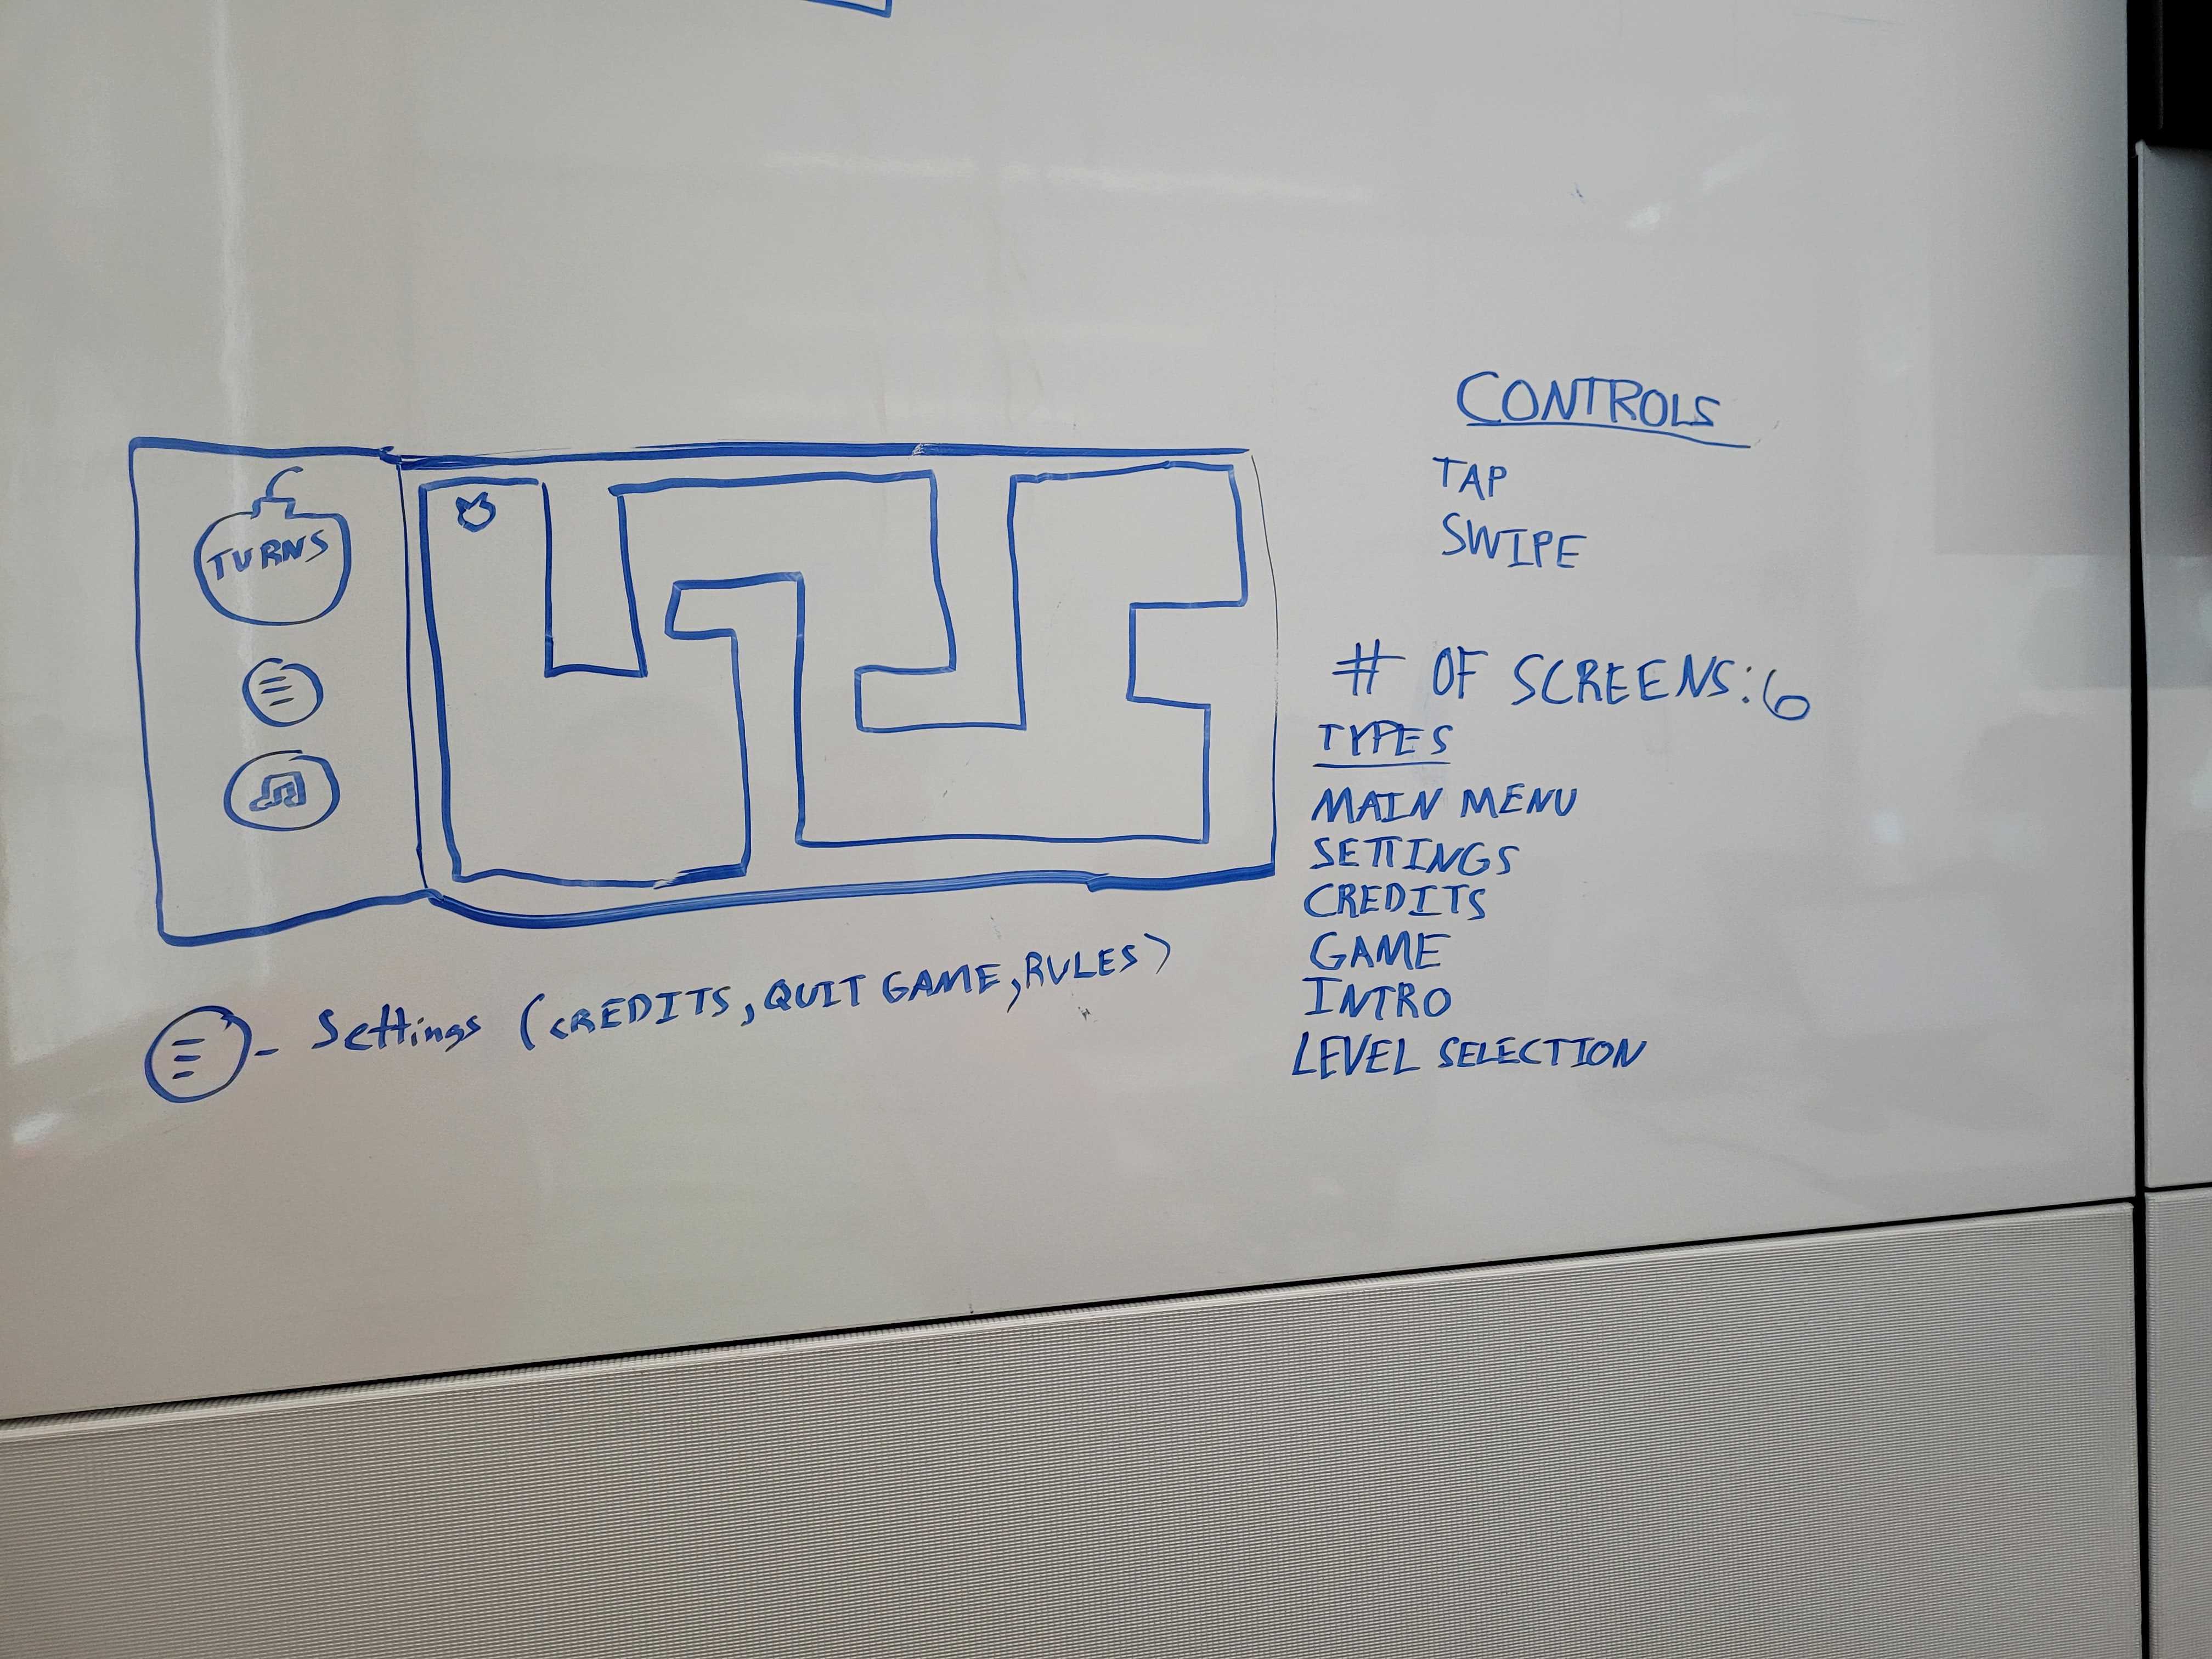 TURNS
Settings (CREDITS, QUIT GAME, RULES)
CONTROLS
TAP
SWIPE
# OF SCREENS: 6
TYPES
MAIN MENU
SETTINGS
CREDITS
GAME
INTRO
LEVEL SELECTION